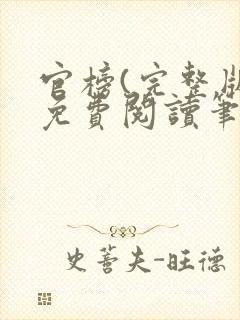 官榜(完整版
免費閱讀筆
史蓍夫-旺德